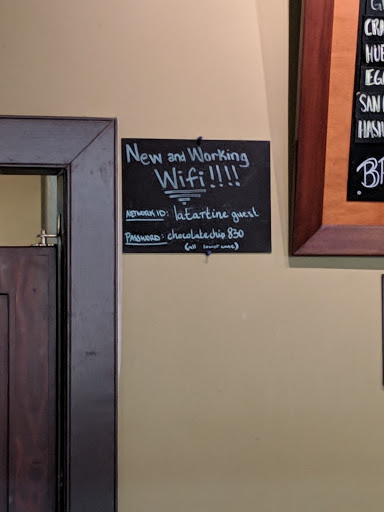 New and Working
Wifi!!!!
NETWORK ID: latartine guest
PASSWORD: chocolatechip 830
(all lower case)
CR
HU
EG
SAN
HASH
BR